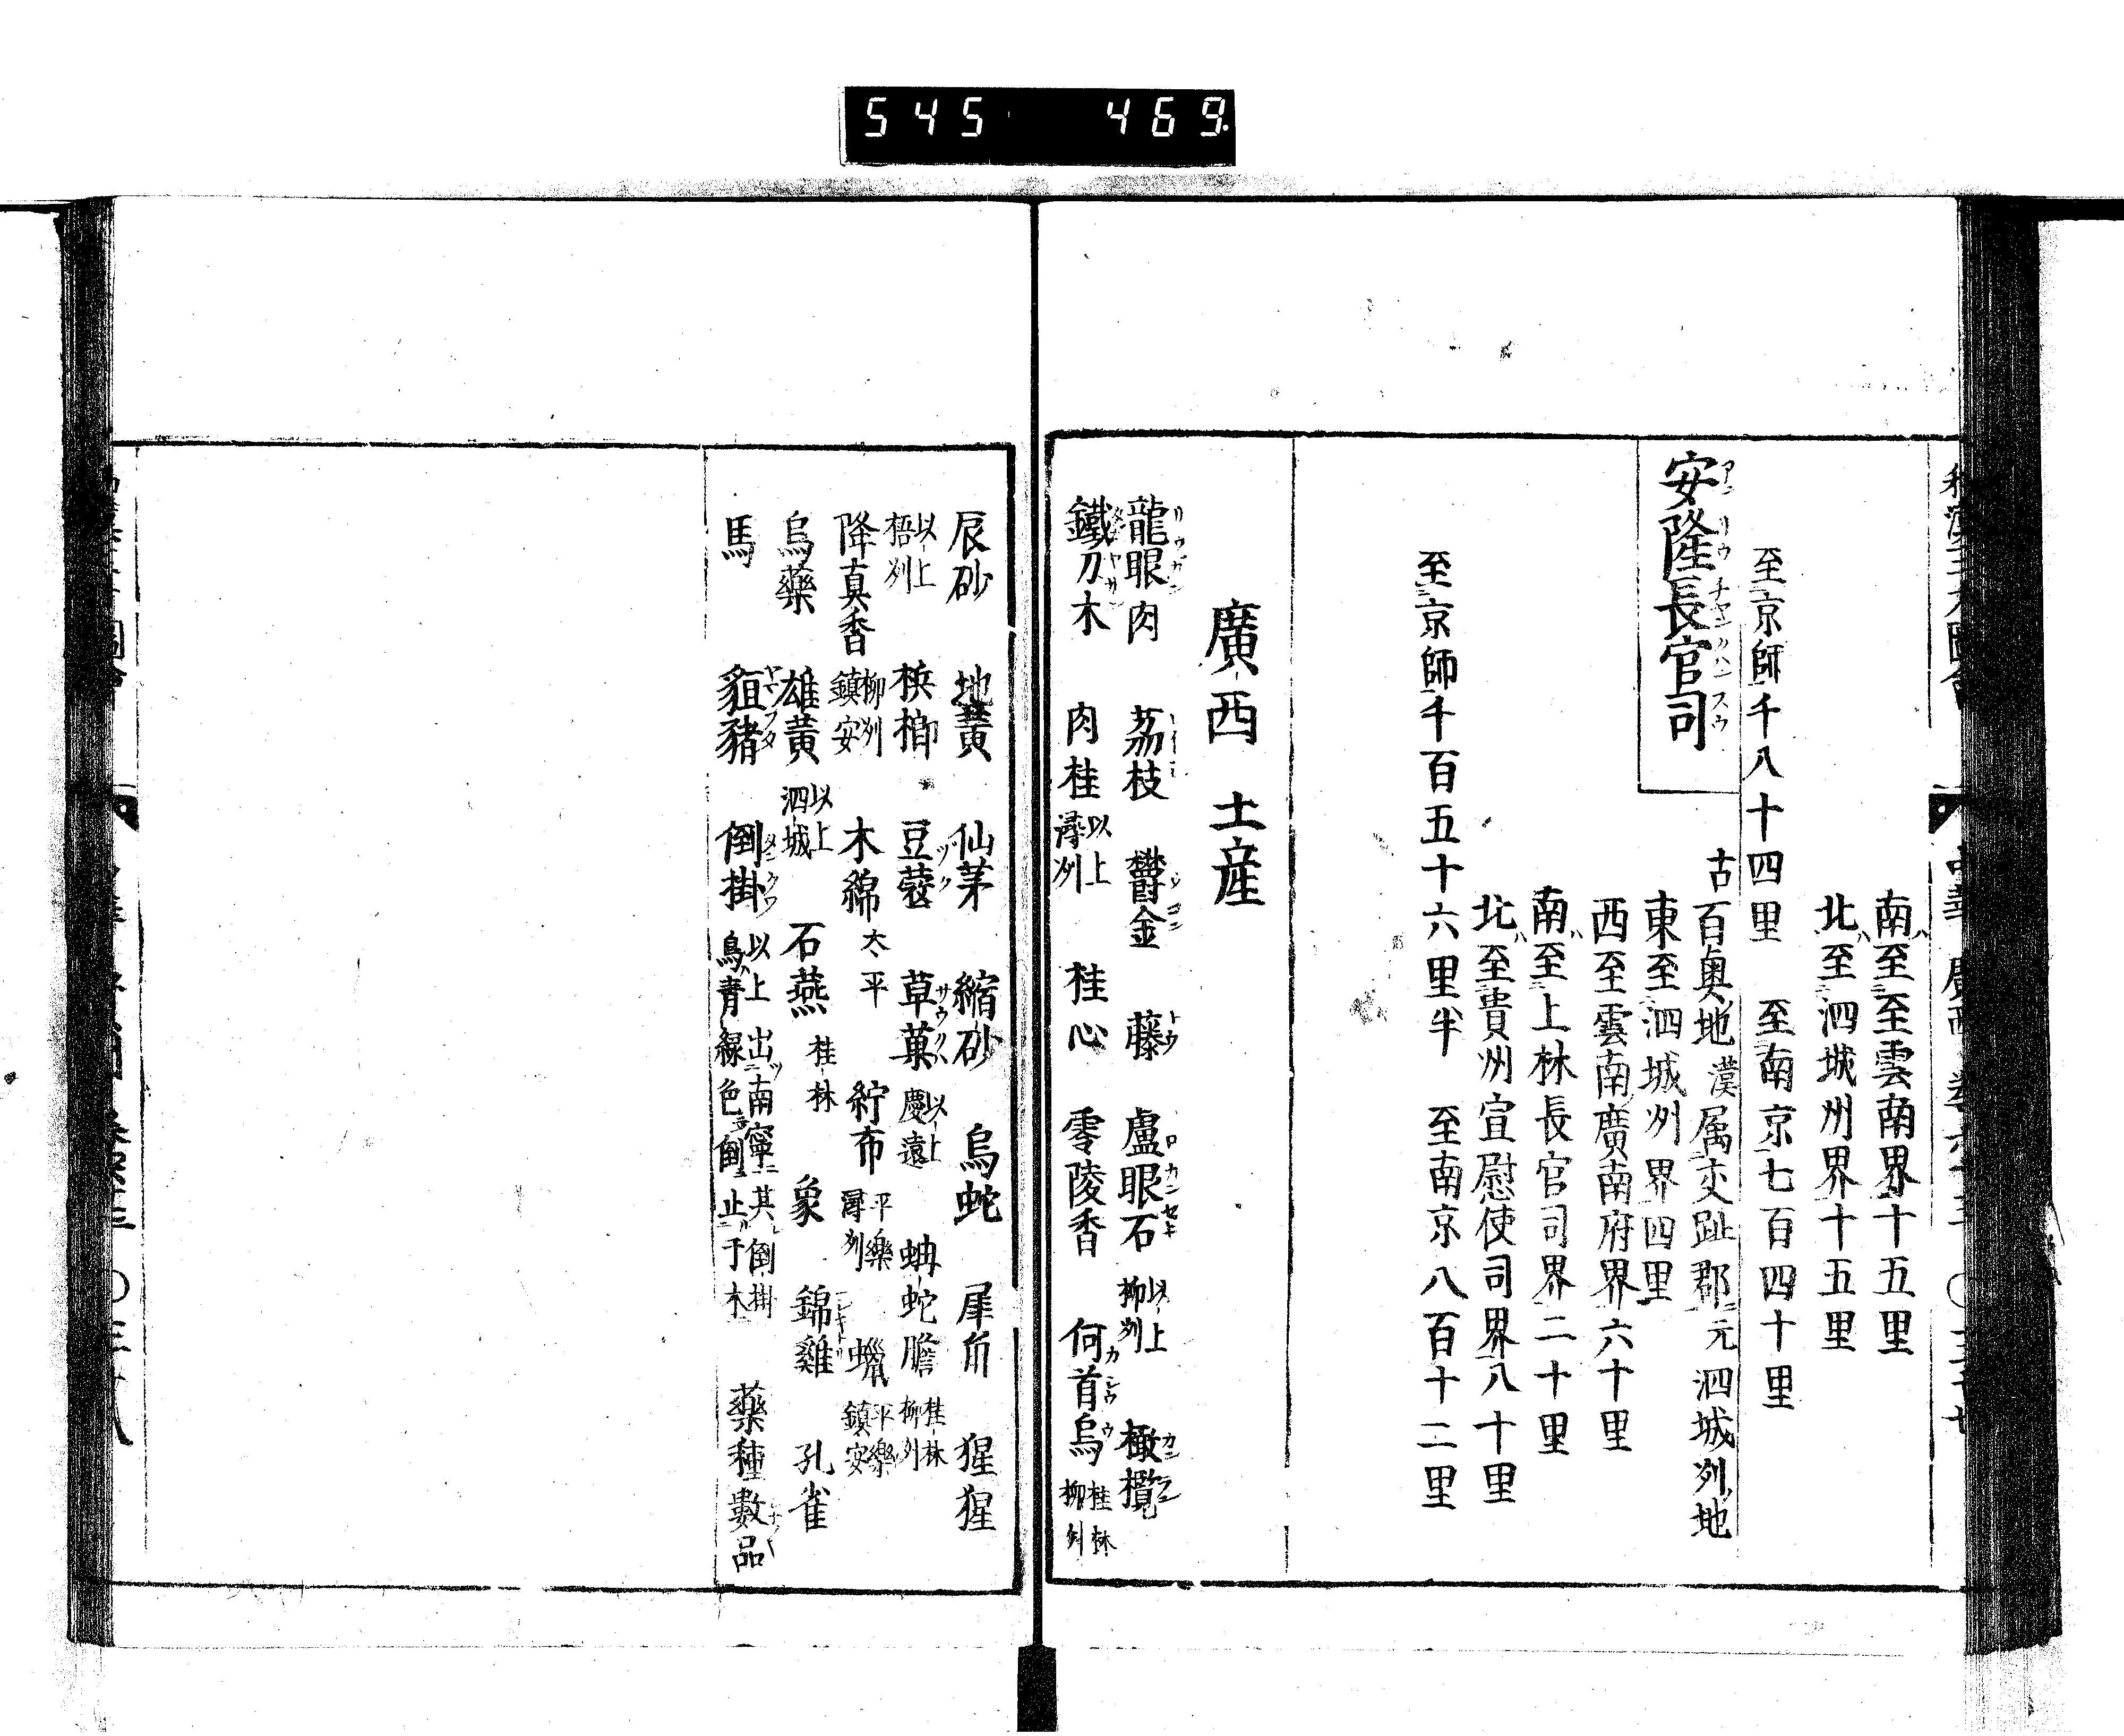 545 469
南ハ至ニ至雲南界ニ十五里
北ハ至ニ泗城州界ニ十五里
至ニ京師ニ千八十四里 至ニ南京ニ七百四十里
安隆長官司
古百奥地漢属交趾郡元泗城州ノ地
東至泗城州界四里
西至雲南廣南府界六十里
南ハ至上林長官司界二十里
北ハ至貴州宣慰使司界八十里
至京師千百五十六里半 至南京八百十二里
廣西 土産
龍眼肉 荔枝 欝金 藤 盧眼石 以上柳州 橄欖
鐵刀木 肉桂 以上潯州 桂心 零陵香 何首烏 桂林柳州
辰砂 地黄 仙茅 縮砂 烏蛇 犀角 猩猩
以上梧州 檳榔 豆蔲 草菓 以上慶遠 蚺蛇膽 桂林柳州
降真香 柳州鎮安 木綿 太平 紵布 平樂潯州 蠟 平樂鎮安
烏藥 雄黄 以上泗城 石燕 桂林 象 錦雞 孔雀
馬 豠豬 倒掛 以上出南寧其倒掛鳥青緑色倒止于木 藥種數品